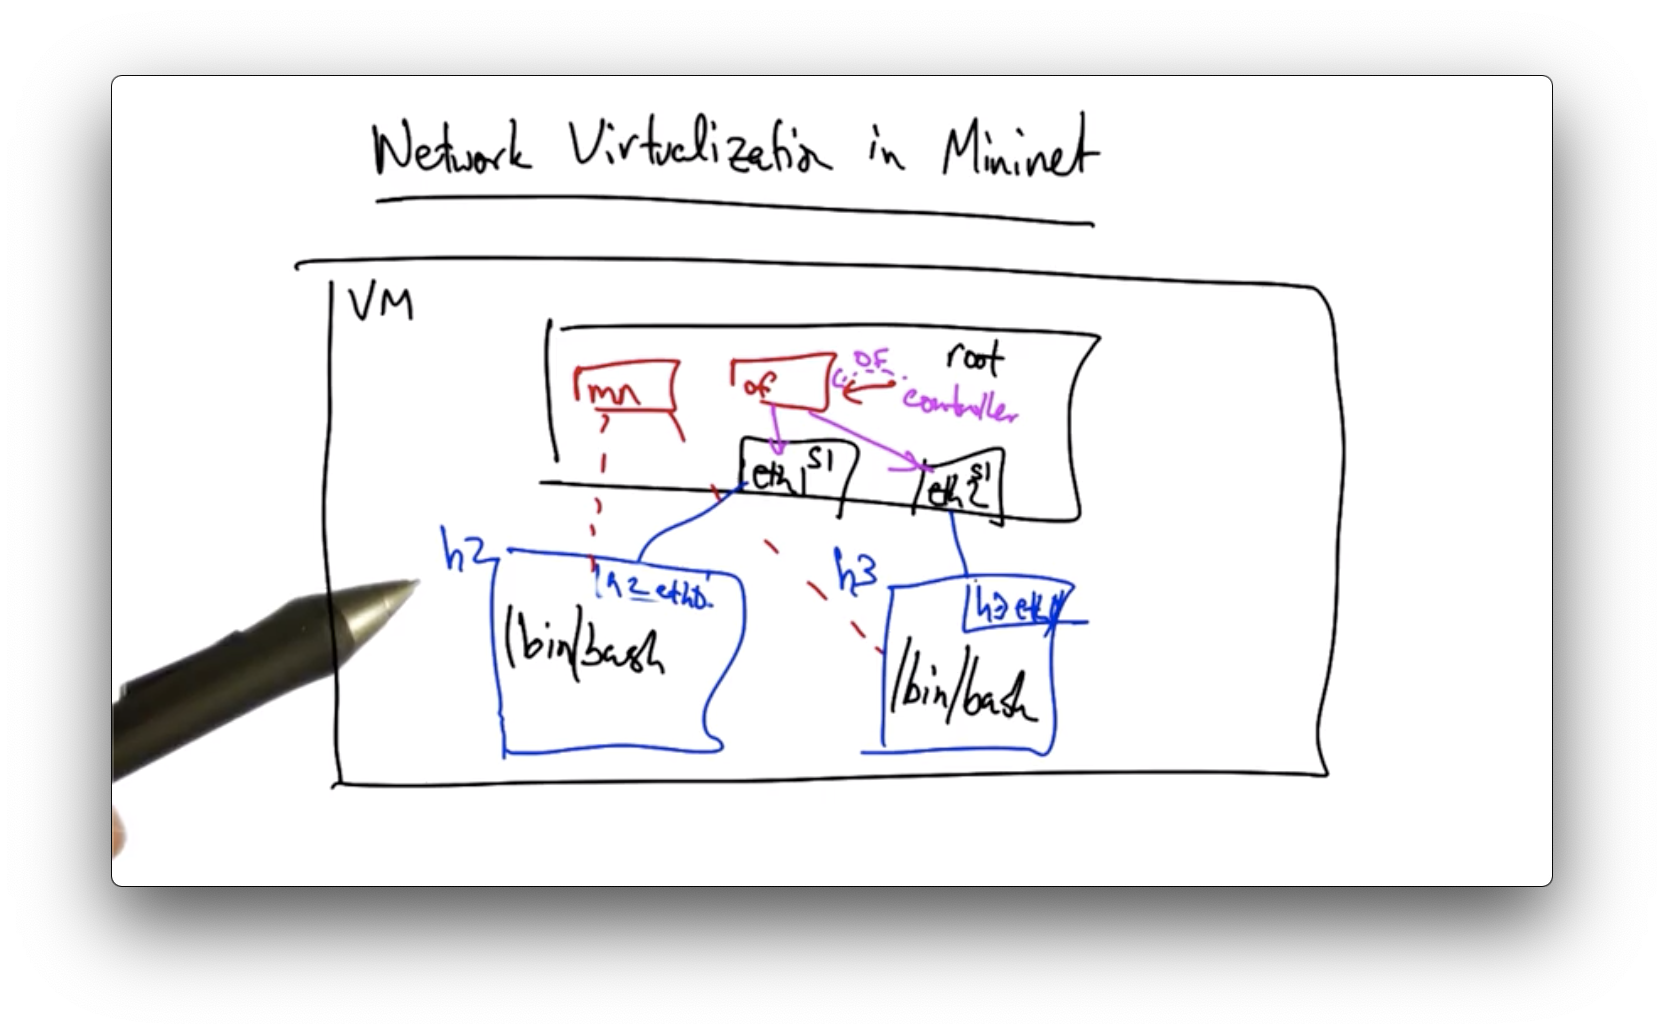 Network Virtualization in Mininet
VM
root
mn
of
OF
controller
eth1 S1
eth2 S1
h2
h2 eth0
/bin/bash
h3
h3 eth0
/bin/bash